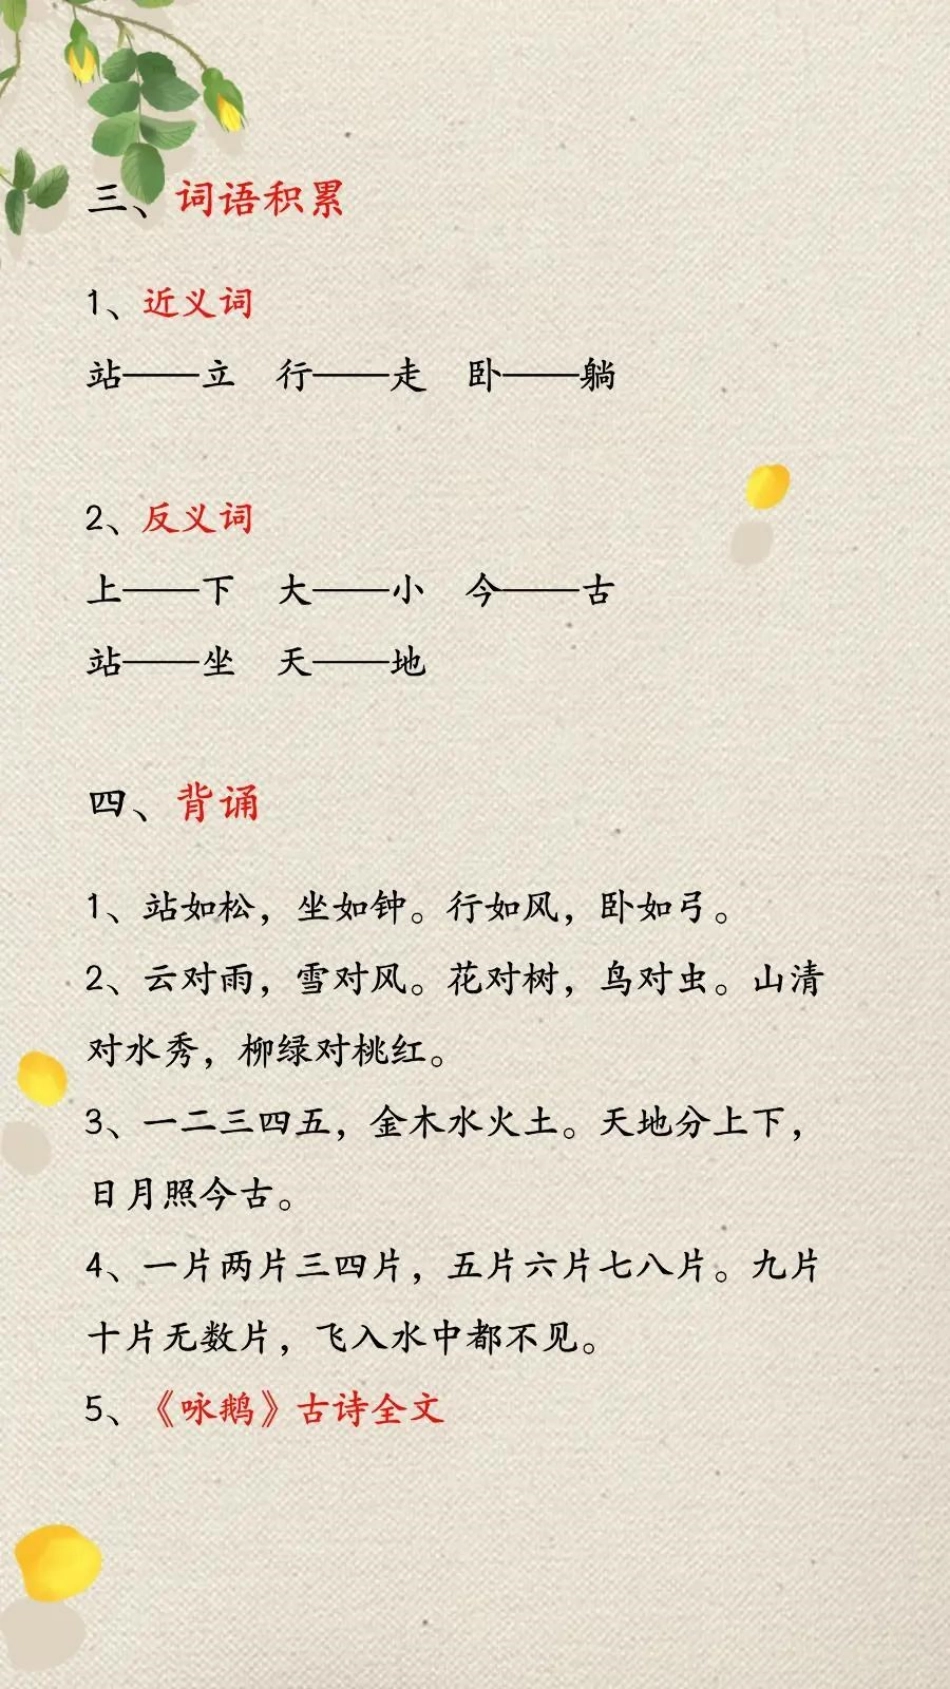 三、词语积累
1、近义词
站——立 行——走 卧——躺
2、反义词
上——下 大——小 今——古
站——坐 天——地
四、背诵
1、站如松，坐如钟。行如风，卧如弓。
2、云对雨，雪对风。花对树，鸟对虫。山清
对水秀，柳绿对桃红。
3、一二三四五，金木水火土。天地分上下，
日月照今古。
4、一片两片三四片，五片六片七八片。九片
十片无数片，飞入水中都不见。
5、《咏鹅》古诗全文